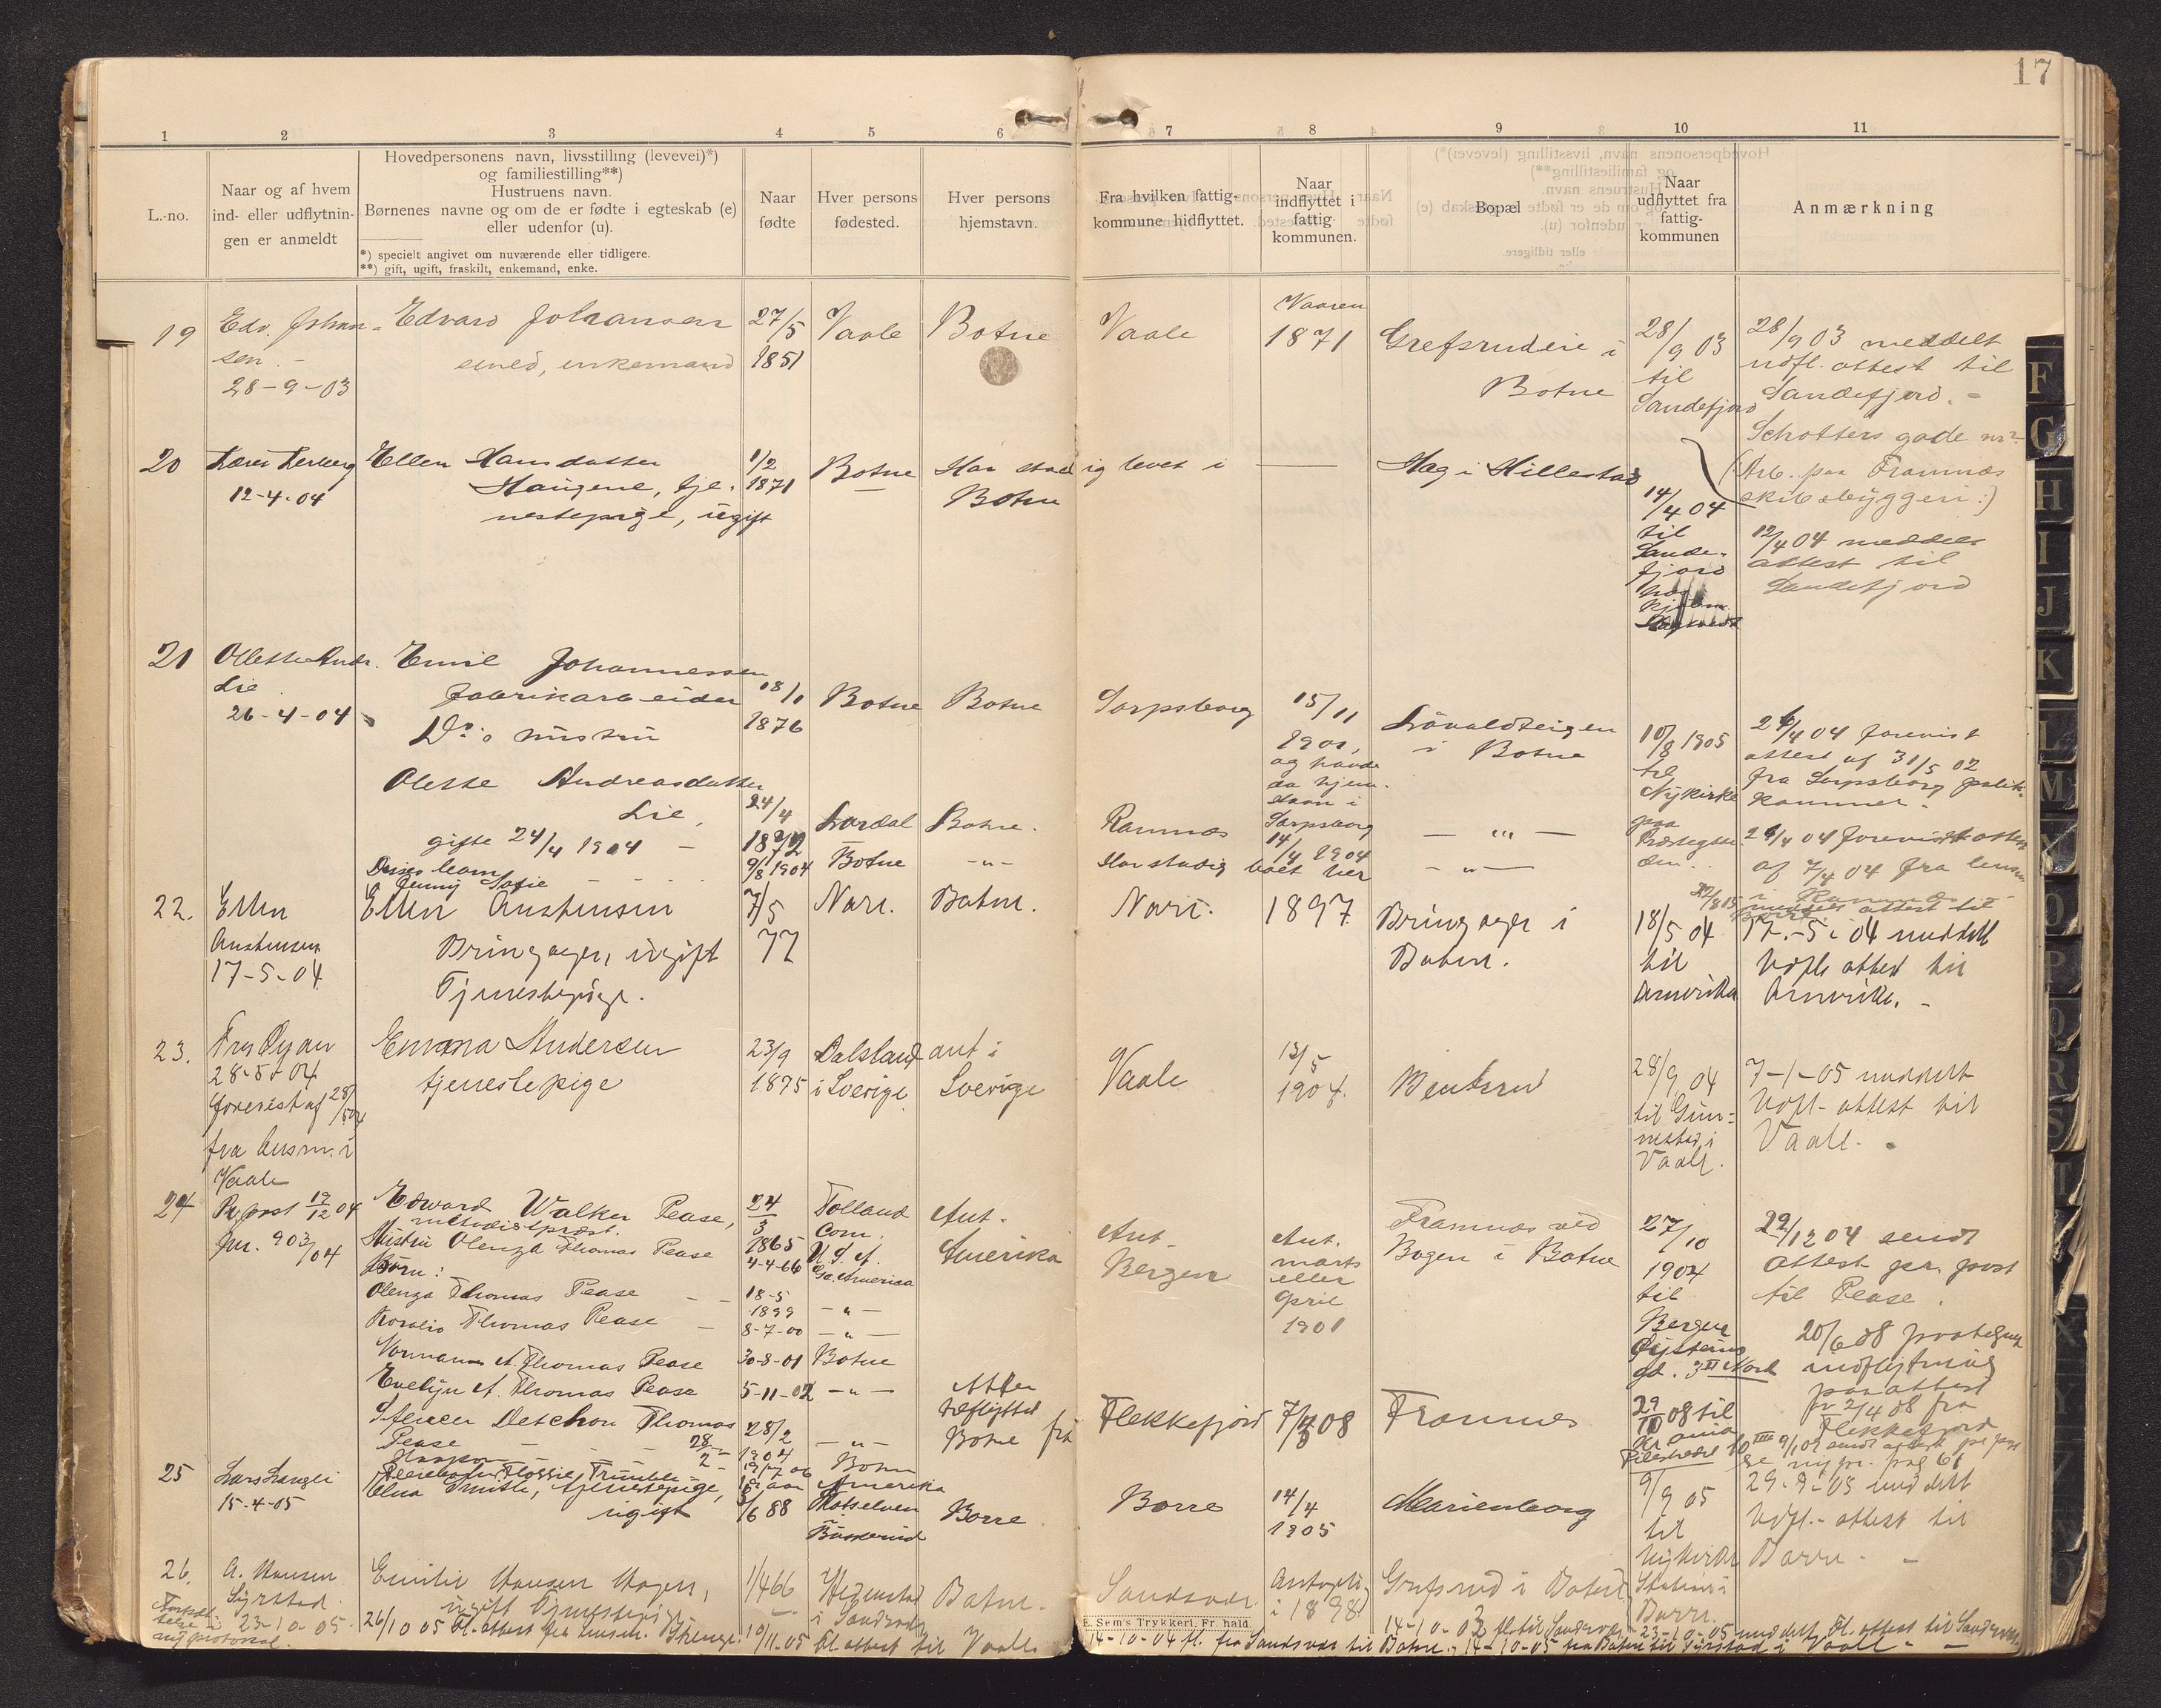 17
1 2 3 4 5 6 7 8 9 10 11
L.-no.
Naar og af hvem
ind- eller udflytnin-
gen er anmeldt
Hovedpersonens navn, livsstilling (levevei)*)
og familiestilling**)
Hustruens navn.
Børnenes navne og om de er fødte i egteskab (e)
eller udenfor (u).
*) specielt angivet om nuværende eller tidligere.
**) gift, ugift, fraskilt, enkemand, enke.
Naar
fødte
Hver persons
fødested.
Hver persons
hjemstavn.
Fra hvilken fattig-
kommune hidflyttet.
Naar
indflyttet i
fattig
kommunen.
Bopæl
Naar
udflyttet fra
fattig-
kommunen
Anmærkning
19
Edv. Johan-
sen.
28-9-03
Edvard Johansen
smed, enkemand
27/5
1851
Vaale
Botne
Vaale
Vaaren
1871
Grefsrudeie i
Botne
28/9 03
til
Sandefjord
28/9 03 meddelt
udfl. attest til
Sandefjord. -
Schotters gade nr
(Arb. paa Framnæs
skibsbyggeri:)
20
12-4-04
Ellen Hansdatter
Haugene, tje-
nestepige, ugift
1/2
1871
Botne
Har stadig levet i
Botne
Hag i Hillestad
14/4 04
til
Sande-
fjord
12/4 04 meddelt
attest til
Sandefjord
21
Olette Andr.
Lie
26-4-04
Emil Johannessen
fabrikarbeider
Do's hustru
Olette Andreasdatter
Lie,
gifte 24/4 1904 -
Deres barn
Jenny Sofie
18/11
1876
24/4
1872
9/8 1904
Botne
Lardal
Botne
Botne
Botne.
-"-
Sarpsborg
Ramnæs
Har stadig boet her
15/11
1901,
og havde
da hjem-
stavn i
Sarpsborg
14/4 1904
i Botne
- "" -
- " -
10/8 1905
til
Nykirke
paa
26/4 04 forevist
attest af 31/5 02
fra Sarpsborg politi-
kammer.
26/4 04 forevist attest
af 7/4 04 fra lensm
i Ramnæs
meddelt attest til
22.
Ellen
Anstensen
17-5-04
Ellen Anstensen
Bringager, ugift
Tjenestepige.
7/5
77
Nari.
Botne.
Nari.
1897
Bringager i
Botne.
18/5 04
til
Amerika
17.-5-04 meddelt
Udfl. attest til
Amerika. -
23.
28-5-04
forevist af 28/5 04
fra lensm. i
Vaale
Emma Andersen
tjenestepige
23/9
1875
Dalsland
i Sverige
ant i
Sverige
Vaale
13/5
1904.
Bentsrud
28/9 04
til Gun-
nestad i
Vaale.
7-1-05 meddelt
Udfl- attest til
Vaale.
24
Pr. post 19/12 04
Jnr. 903/04
Edward Walker Pease,
metodistprest.
Hustru Olenza Thomas Pease
Børn:
Olenza Thomas Pease
Rosalio Thomas Pease
Norman A. Thomas Pease
Evelyn A. Thomas Pease
Spencer Detchon Thomas
Pease
24/3
1865
4-4-66
18-5
1899
8-7-00
30-8-01
5-11-02
28/2
1904
Tolland
Com.
U. S. A.
- " -
- " -
Botne
- " -
- " -
Botne
Ant.
Amerika
Atter
indflyttet
Botne fra
Ant.
Bergen
Flekkefjord
Ant.
marts
eller
April
1901
Framnæs ved
Bogen i Botne
Framnes
27/10
1904
til
Bergen
29/10 08 til
Kr.ania
Pilestrædet
22/12 04 sendt
attest pr. post
til Pease.
20/6 08 paategnet
indflytning
paa attest
fra
Flekkefjord
se ny pr. pag 61
25
Lars Langli
15-4-05
Elna Smith, tjenestepige,
ugift
6/6 88
Hatselven
i
Buskerud
Borre
Borre
14/4
1905
Marienborg
9/9 05
til
Nykirke
29-9-05 meddelt
Udfl.- attest til
Borre. -
26.
A. Hansen
Syrstad.
23-10-05.
Emilie Hansen Hagen,
ugift Tjenestepige
1/4 66
Hegnstad
i Sandsvær
Botne.
Sandsvær
Antagelig
i 1898
Grefsrud i Botne
Station i
Borre.
26/10 05 Fl.-attest fra lensm.
10/11-05 Fl. attest til Vaale
E. Sem's Trykkeri, Fr.hald.
14-10-03 fl. til Sandsvær 23-10-05 meddelt Fl. attest til Sandsvær
14-10-04 fl. fra Sandsvær til Botne, 14-10-05 fra Botne til Syrstad i Vaale -
F
G
H
I
J
K
L
M
N
O
P
Q
R
S
T
X
Y